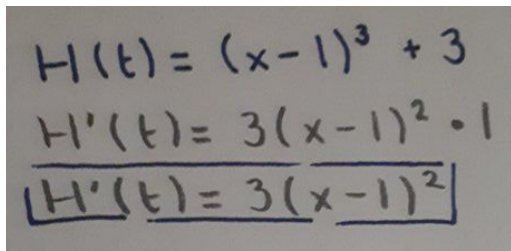 H(t) = (x-1)³ + 3
H'(t) = 3(x-1)² • 1
H'(t) = 3(x-1)²